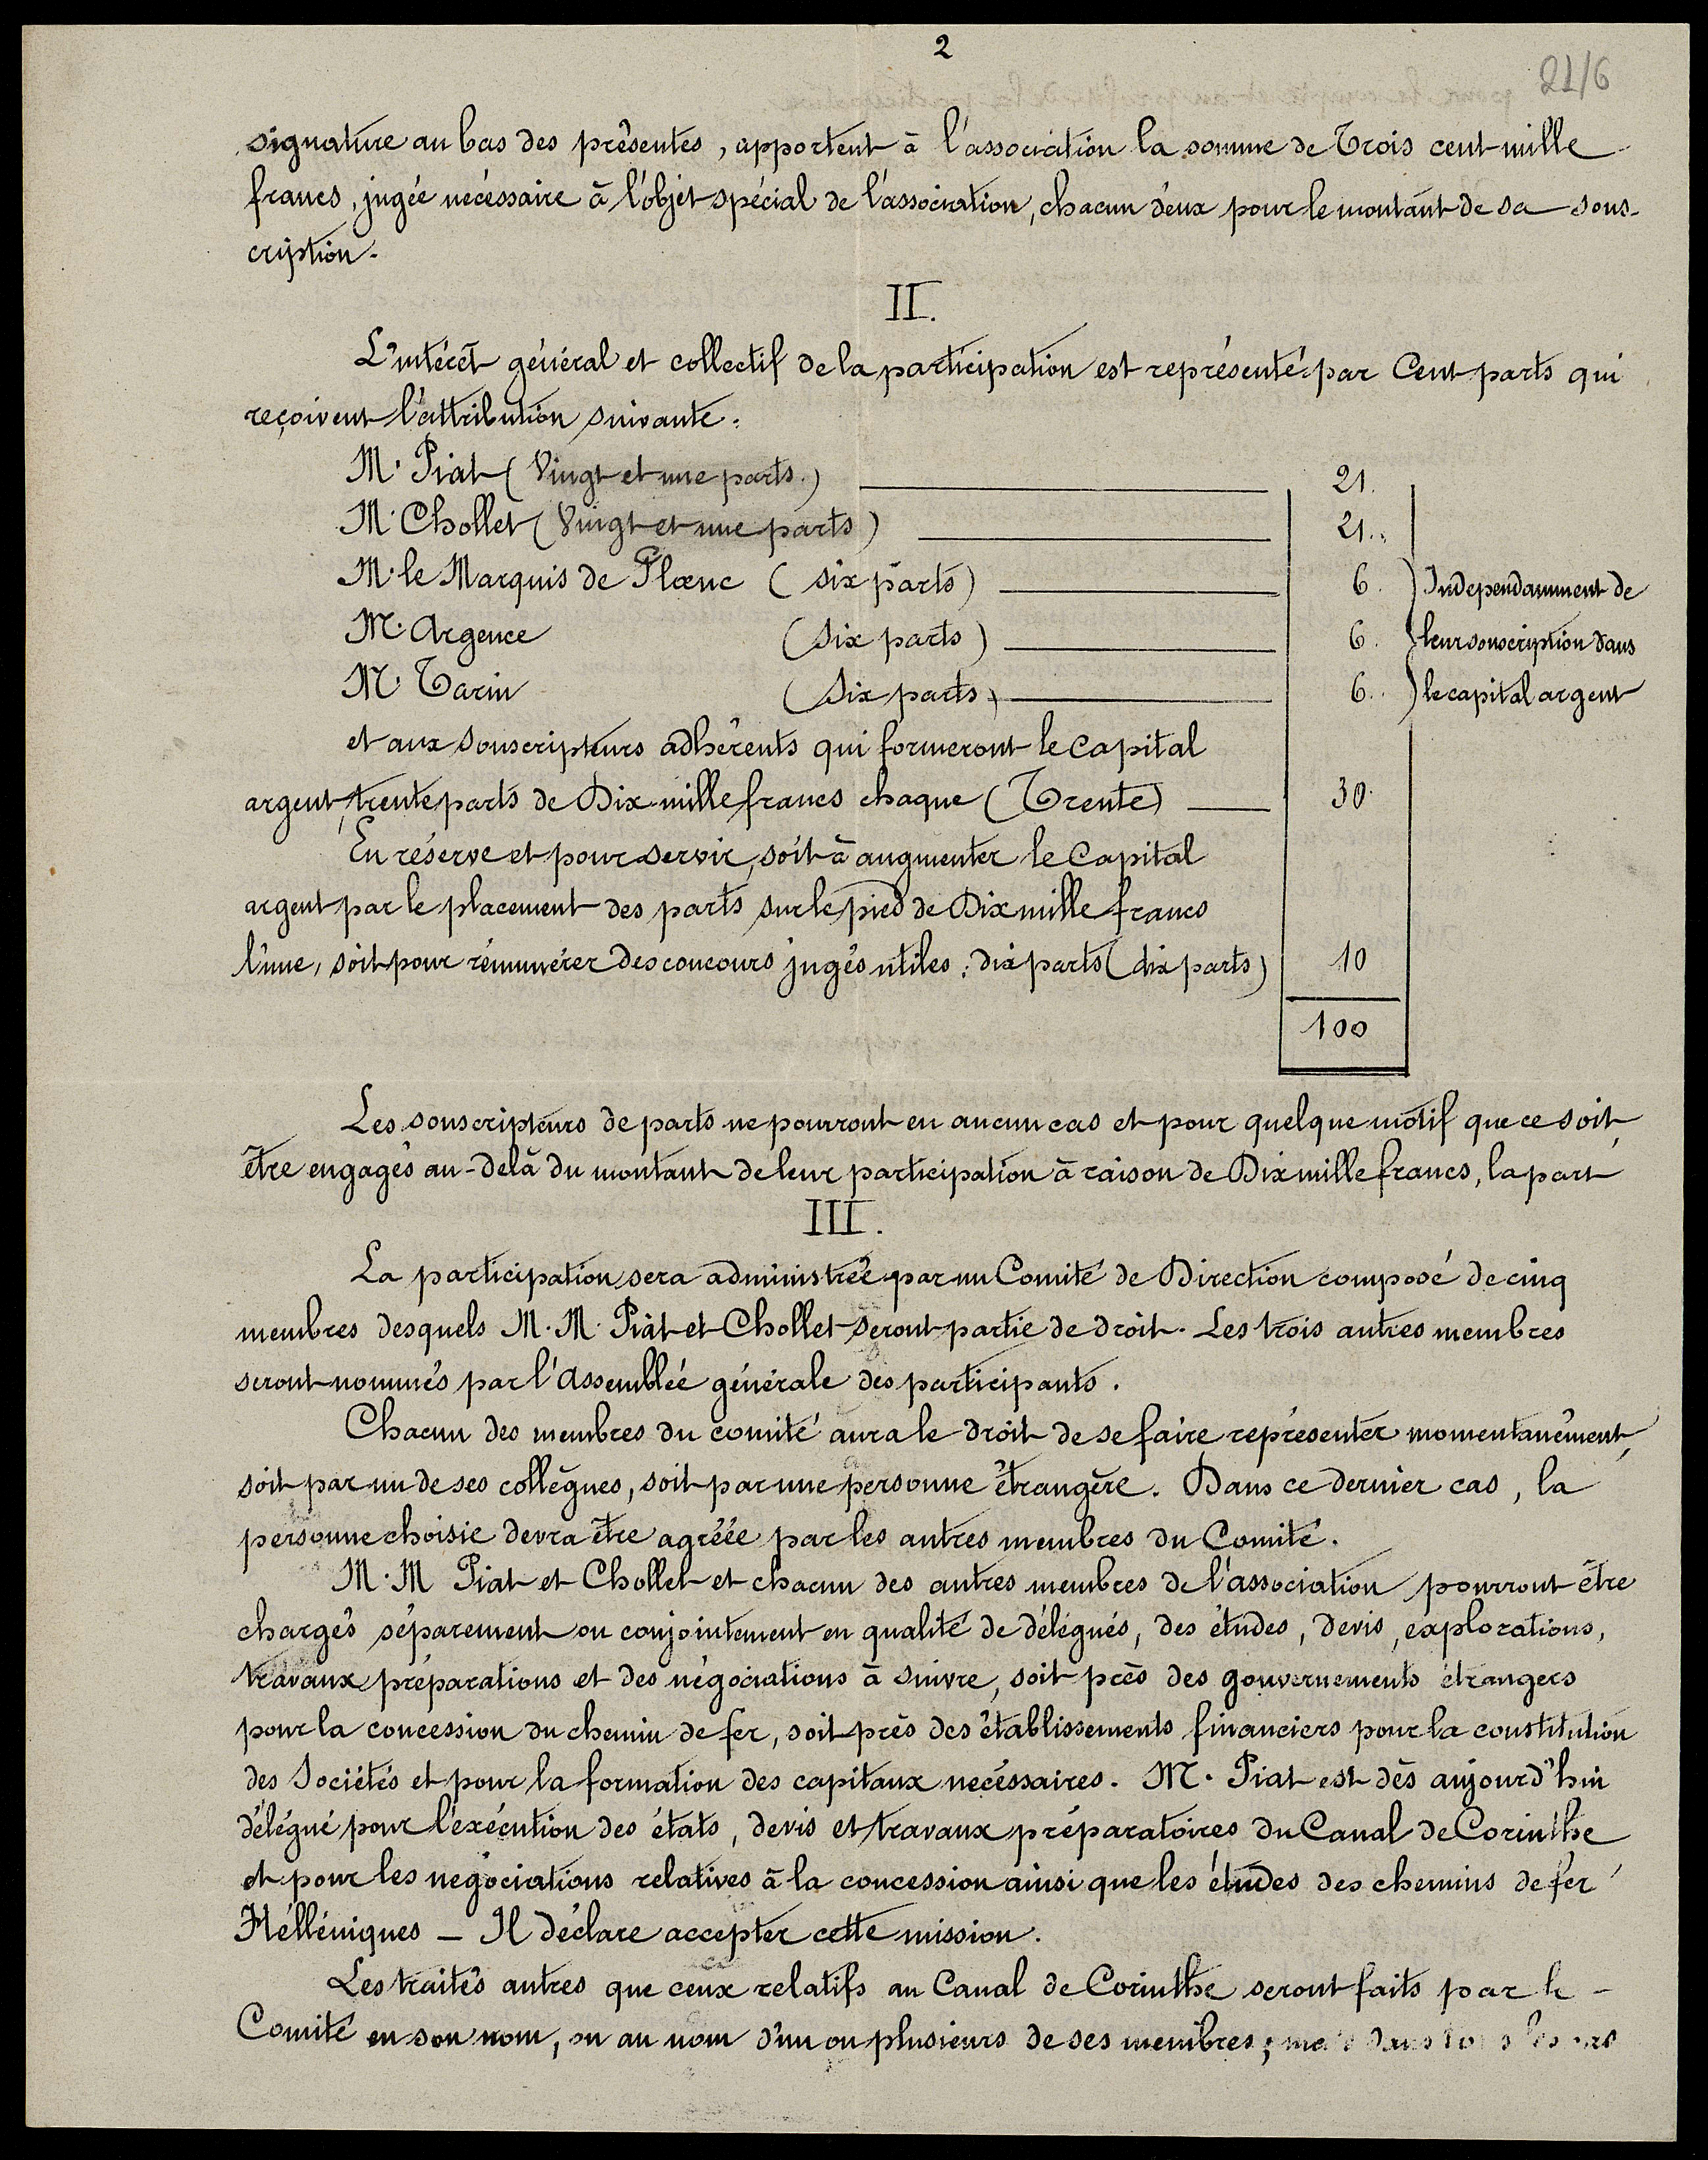 2
21/6
signature au bas des présentes, apportent à l'association la somme de Trois cent mille
francs, jugée nécessaire à l'objet spécial de l'association, chacun d'eux pour le montant de sa sous-
cription.
II.
L'intérêt général et collectif de la participation est représenté par Cent parts qui
reçoivent l'attribution suivante:
M. Piat (Vingt et une parts.) 21.
M. Chollet (Vingt et une parts) 21..
M. le Marquis de Plœuc (six parts) 6. Independamment de
M. Argence (six parts) 6. leur souscription dans
M. Tarin (six parts) 6.. le capital argent
et aux souscripteurs adhérents qui formeront le Capital
argent, trente parts de Dix mille francs chaque (Trente) 30.
En réserve et pour servir, soit à augmenter le Capital
argent par le placement des parts sur le pied de Dix mille francs
l'une, soit pour rémunérer des concours jugés utiles: dix parts (dix parts) 10
100
Les souscripteurs de parts ne pourront en aucun cas et pour quelque motif que ce soit,
être engagés au-delà du montant de leur participation à raison de Dix mille francs, la part
III.
La participation sera administrée par un Comité de Direction composé de cinq
membres desquels M. M. Piat et Chollet seront partie de droit. Les trois autres membres
seront nommés par l'Assemblée générale des participants.
Chacun des membres du comité aura le droit de se faire représenter momentanément,
soit par un de ses collègues, soit par une personne étrangère. Dans ce dernier cas, la
personne choisie devra être agréée par les autres membres du Comité.
M. M Piat et Chollet et chacun des autres membres de l'association pourront être
chargés séparement ou conjointement en qualité de délégués, des études, devis, explorations,
travaux préparations et des négociations à suivre, soit près des gouvernements étrangers
pour la concession du chemin de fer, soit près des établissements financiers pour la constitution
des Sociétés et pour la formation des capitaux necéssaires. M. Piat est dès aujourd'hui
délégué pour l'éxécution des états, devis et travaux préparatoires du Canal de Corinthe
et pour les négociations relatives à la concession ainsi que les études des chemins de fer
Hélléniques - Il déclare accepter cette mission.
Les traités autres que ceux relatifs au Canal de Corinthe seront faits par le -
Comité en son nom, ou au nom d'un ou plusieurs de ses membres; mais dans tous les cas